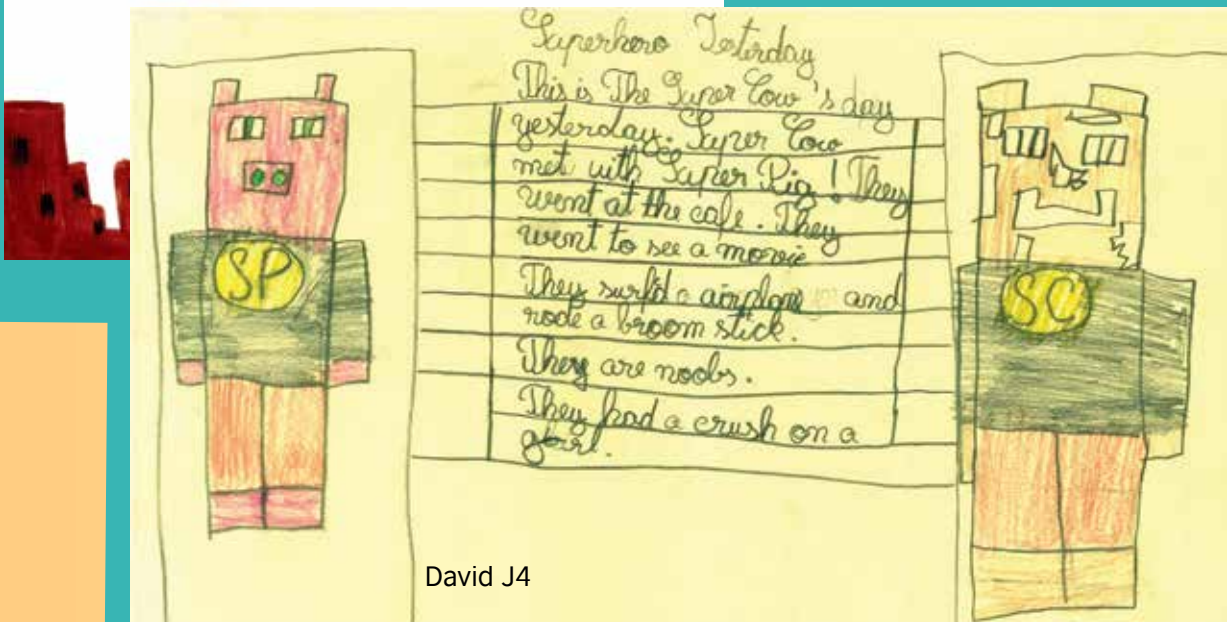 Superhero Yesterday
This is The Super Cow's day
yesterday. Super Cow
met with Super Pig! They
went at the cafe. They
went to see a movie
They surf'd a airplane and
rode a broom stick.
They are noobs.
They had a crush on a
girl.
SP
SC
David J4